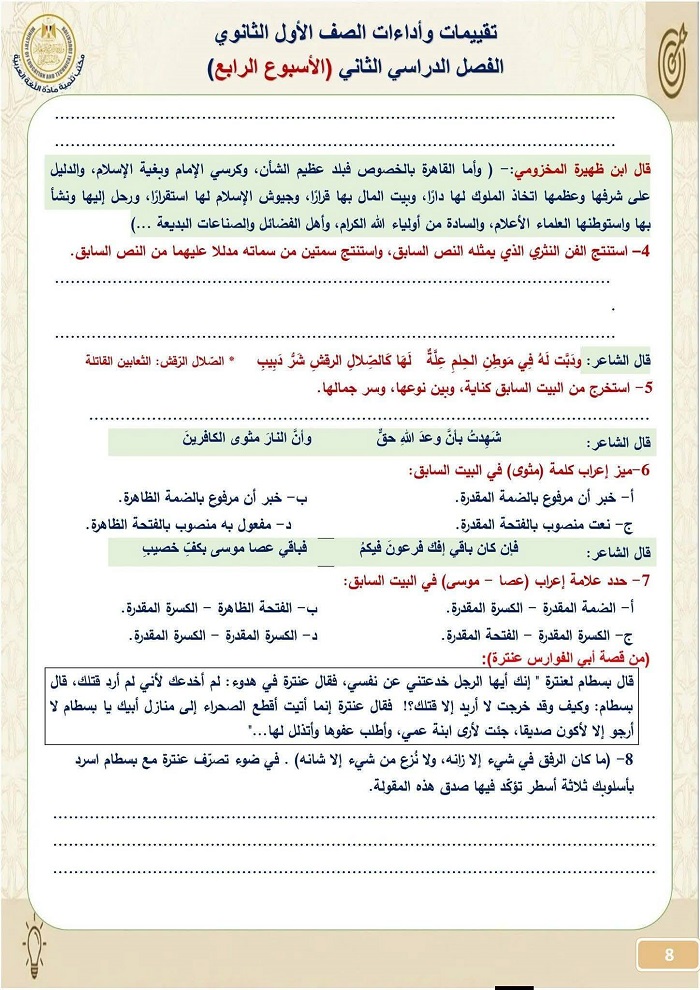 تقييمات وأداءات الصف الأول الثانوي
الفصل الدراسي الثاني (الأسبوع الرابع)
مكتب تنمية مادة اللغة العربية
........................................................................
........................................................................
قال ابن ظهيرة المخزومي:- ( وأما القاهرة بالخصوص فبلد عظيم الشأن، وكرسي الإمام وبغية الإسلام، والدليل
على شرفها وعظمها اتخاذ الملوك لها دارًا، وبيت المال بها قرارًا، وجيوش الإسلام لها استقرارًا، ورحل إليها ونشأ
بها واستوطنها العلماء الأعلام، والسادة من أولياء الله الكرام، وأهل الفضائل والصناعات البديعة ...)
4- استنتج الفن النثري الذي يمثله النص السابق، واستنتج سمتين من سماته مدللا عليهما من النص السابق.
........................................................................
.
........................................................................
قال الشاعر: ودَبَّت لَهُ فِي مَوطِنِ الحِلمِ عِلَّةٌ لَهَا كَالصِّلالِ الرقشِ شَرُّ دَبِيبِ * الصّلال الرّقش: الثّعابين القاتلة
5- استخرج من البيت السابق كناية، وبين نوعها، وسر جمالها.
........................................................................
قال الشاعر: شَهِدتُ بأنَّ وعدَ اللهِ حقٍّ وأنَّ النارَ مثوى الكافرينَ
6-ميز إعراب كلمة (مثوى) في البيت السابق:
أ- خبر أن مرفوع بالضمة المقدرة. ب- خبر أن مرفوع بالضمة الظاهرة.
ج- نعت منصوب بالفتحة المقدرة. د- مفعول به منصوب بالفتحة الظاهرة.
قال الشاعر: فإن كان باقي إفك فرعونَ فيكمُ فباقي عصا موسى بكفِّ خصيبِ
7- حدد علامة إعراب (عصا - موسى) في البيت السابق:
أ- الضمة المقدرة - الكسرة المقدرة. ب- الفتحة الظاهرة - الكسرة المقدرة.
ج- الكسرة المقدرة - الفتحة المقدرة. د- الكسرة المقدرة - الكسرة المقدرة.
(من قصة أبي الفوارس عنترة):
قال بسطام لعنترة " إنك أيها الرجل خدعتني عن نفسي، فقال عنترة في هدوء: لم أخدعك لأني لم أرد قتلك، قال
بسطام: وكيف وقد خرجت لا أريد إلا قتلك؟! فقال عنترة إنما أتيت أقطع الصحراء إلى منازل أبيك يا بسطام لا
أرجو إلا لأكون صديقا، جئت لأرى ابنة عمي، وأطلب عفوها وأتذلل لها..."
8- (ما كان الرفق في شيء إلا زانه، ولا نُزع من شيء إلا شانه) . في ضوء تصرّف عنترة مع بسطام اسرد
بأسلوبك ثلاثة أسطر تؤكّد فيها صدق هذه المقولة.
........................................................................
........................................................................
........................................................................
8